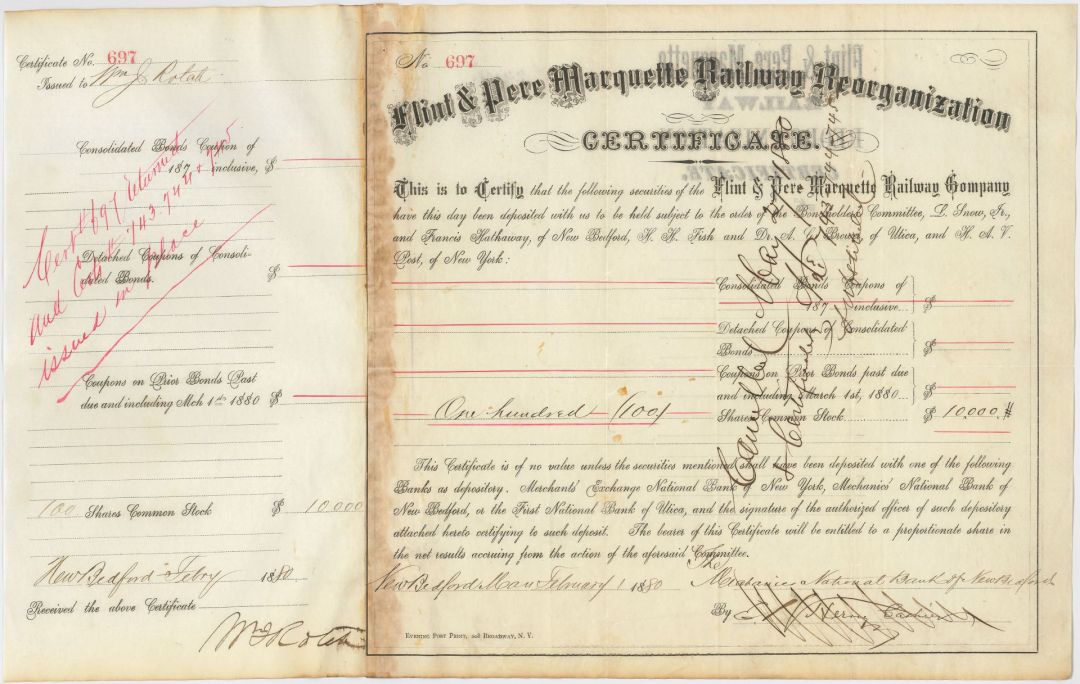 Certificate No. 697
Issued to Wm J. Rotch
Consolidated Bonds Coupon of
187 inclusive, $
Detached Coupons of Consoli-
dated Bonds. $
Cert # 697 returned
and Certs # 743. 744 + 745
issued in place
Coupons on Prior Bonds Past
due and including Mch 1st 1880 $
100 Shares Common Stock $ 10000
New Bedford Febry 1880
Received the above Certificate
Wm J. Rotch
No 697
Flint & Pere Marquette Railway Reorganization
CERTIFICATE.
This is to Certify that the following securities of the Flint & Pere Marquette Railway Company
have this day been deposited with us to be held subject to the order of the Bondholders Committee, L. Snow, Jr.,
and Francis Hathaway, of New Bedford, H. H. Fish and Dr. A. G. Brower, of Utica, and H. A. V.
Post, of New York:
Consolidated Bonds Coupons of
187 inclusive $
Detached Coupons of Consolidated
Bonds $
Coupons on Prior Bonds past due
and including March 1st, 1880 $
One hundred (100) Shares Common Stock $ 10,000.#
Cancelled May 27/1880
& Certificates
This Certificate is of no value unless the securities mentioned shall have been deposited with one of the following
Banks as depository. Merchants' Exchange National Bank of New York, Mechanics' National Bank of
New Bedford, or the First National Bank of Utica, and the signature of the authorized officer of such depository
attached hereto certifying to such deposit. The bearer of this Certificate will be entitled to a proportionate share in
the net results accruing from the action of the aforesaid Committee.
New Bedford Mass February 1880 The Mechanics National Bank of New Bedford
By Cashier
EVENING POST PRINT, 208 BROADWAY, N. Y.